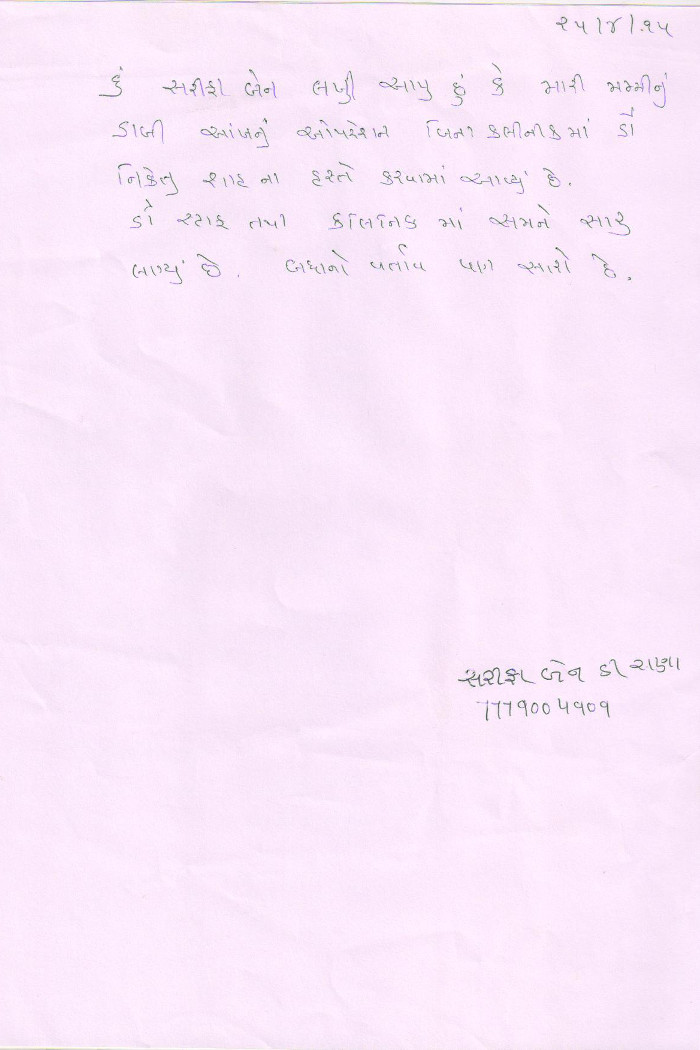 ૨૫/૪/.૧૫
હું સરીફા બેન લખી આપુ છું કે મારી મમ્મીનું
ડાબી આંખનું ઓપરેશન બિના કલીનીકમાં ડૉ
નિકેતુ શાહ ના હસ્તે કરવામાં આવ્યું છે.
ડૉ સ્ટાફ તથા કલિનિક માં અમને સારુ
લાગ્યું છે. બધાનો વર્તાવ પણ સારો છે.
સરીફા બેન ડી રાણા